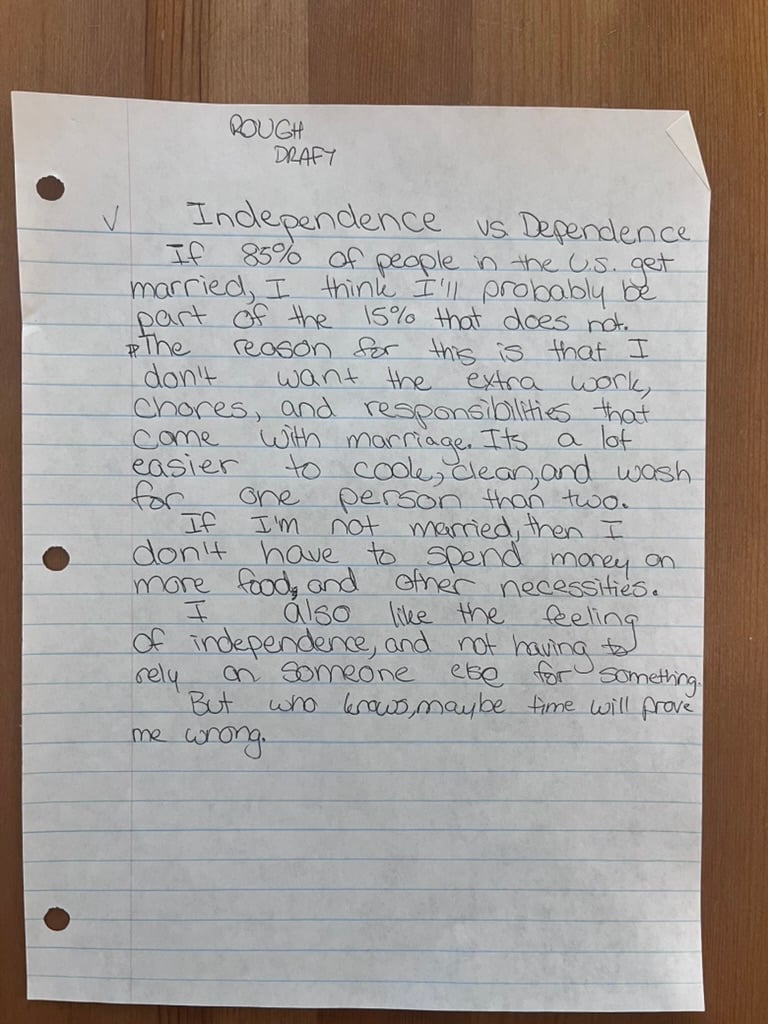 ROUGH
DRAFT
✓ Independence vs Dependence
If 85% of people in the U.S. get
married, I think I'll probably be
part of the 15% that does not.
The reason for this is that I
don't want the extra work,
chores, and responsibilities that
come with marriage. Its a lot
easier to cook, clean, and wash
for one person than two.
If I'm not married, then I
don't have to spend money on
more food, and other necessities.
I also like the feeling
of independence, and not having to
rely on someone else for something.
But who knows, maybe time will prove
me wrong.